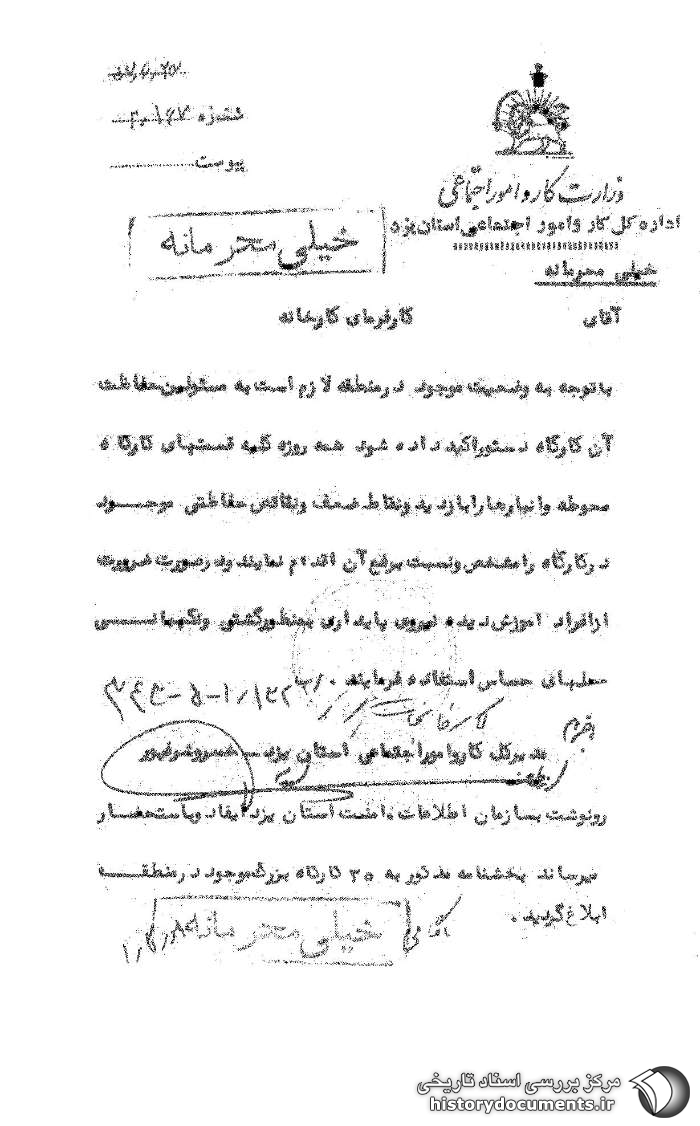 شماره ۳۰۱۶۷
پیوست
وزارت کار و امور اجتماعی
اداره کل کار و امور اجتماعی استان یزد
خیلی محرمانه
خیلی محرمانه
آقای کارفرمای کارخانه
باتوجه به وضعیت موجود در منطقه لازم است به مسئولین حفاظت
آن کارگاه دستور اکید داده شود همه روزه کلیه قسمتهای کارگاه
محوطه و انبارها را بازدید و نقاط ضعف و نقائص حفاظتی موجود
در کارگاه را مشخص و نسبت برفع آن اقدام نمایند و در صورت ضرورت
از افراد آموزش دیده نیروی پایداری بمنظور گشتی و نگهبانی
محلهای حساس استفاده فرمایند .
مدیرکل کار و امور اجتماعی استان یزد ـ خسرو شرفپور
رونوشت بسازمان اطلاعات و امنیت استان یزد ایفاد و باستحضار
میرساند بخشنامه مذکور به ۳۵ کارگاه بزرگ موجود در منطقه
ابلاغ گردید .
خیلی محرمانه
مرکز بررسی اسناد تاریخی
historydocuments.ir